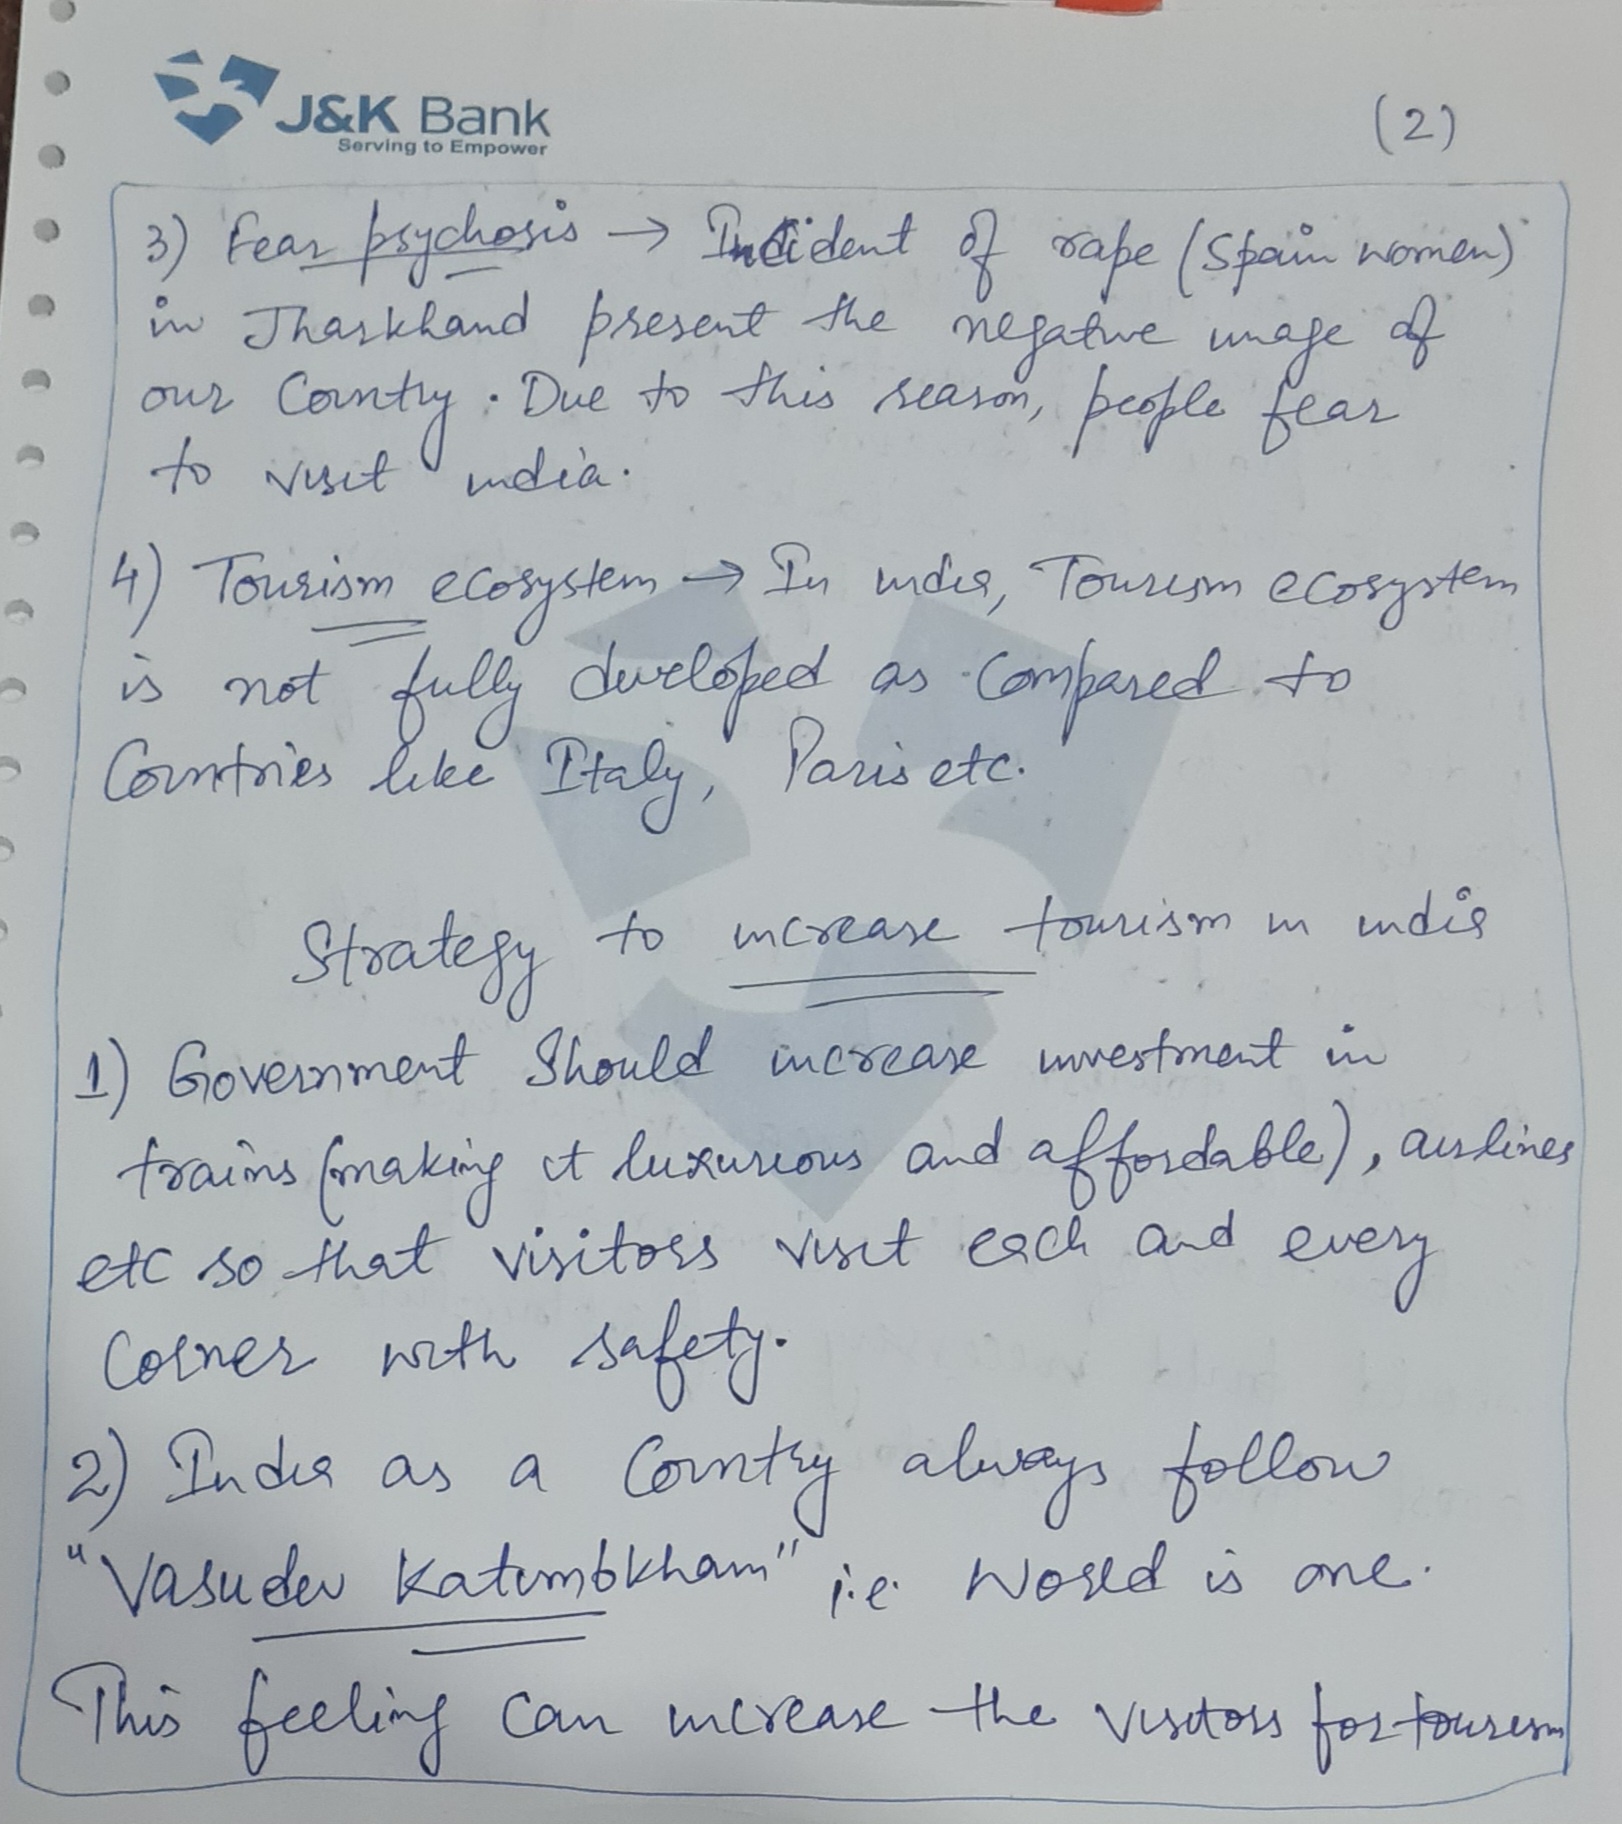 J&K Bank
Serving to Empower
(2)
3) Fear psychosis → Incident of rape (Spain women)
in Jharkhand present the negative image of
our Country. Due to this reason, people fear
to visit india.
4) Tourism ecosystem → In india, Tourism ecosystem
is not fully developed as compared to
Countries like Italy, Paris etc.
Strategy to increase tourism in india
1) Government Should increase investment in
trains (making it luxurious and affordable), airlines
etc so that visitors visit each and every
Corner with safety.
2) India as a Country always follow
"Vasudev Katumbkham" i.e. World is one.
This feeling can increase the visitors for tourism